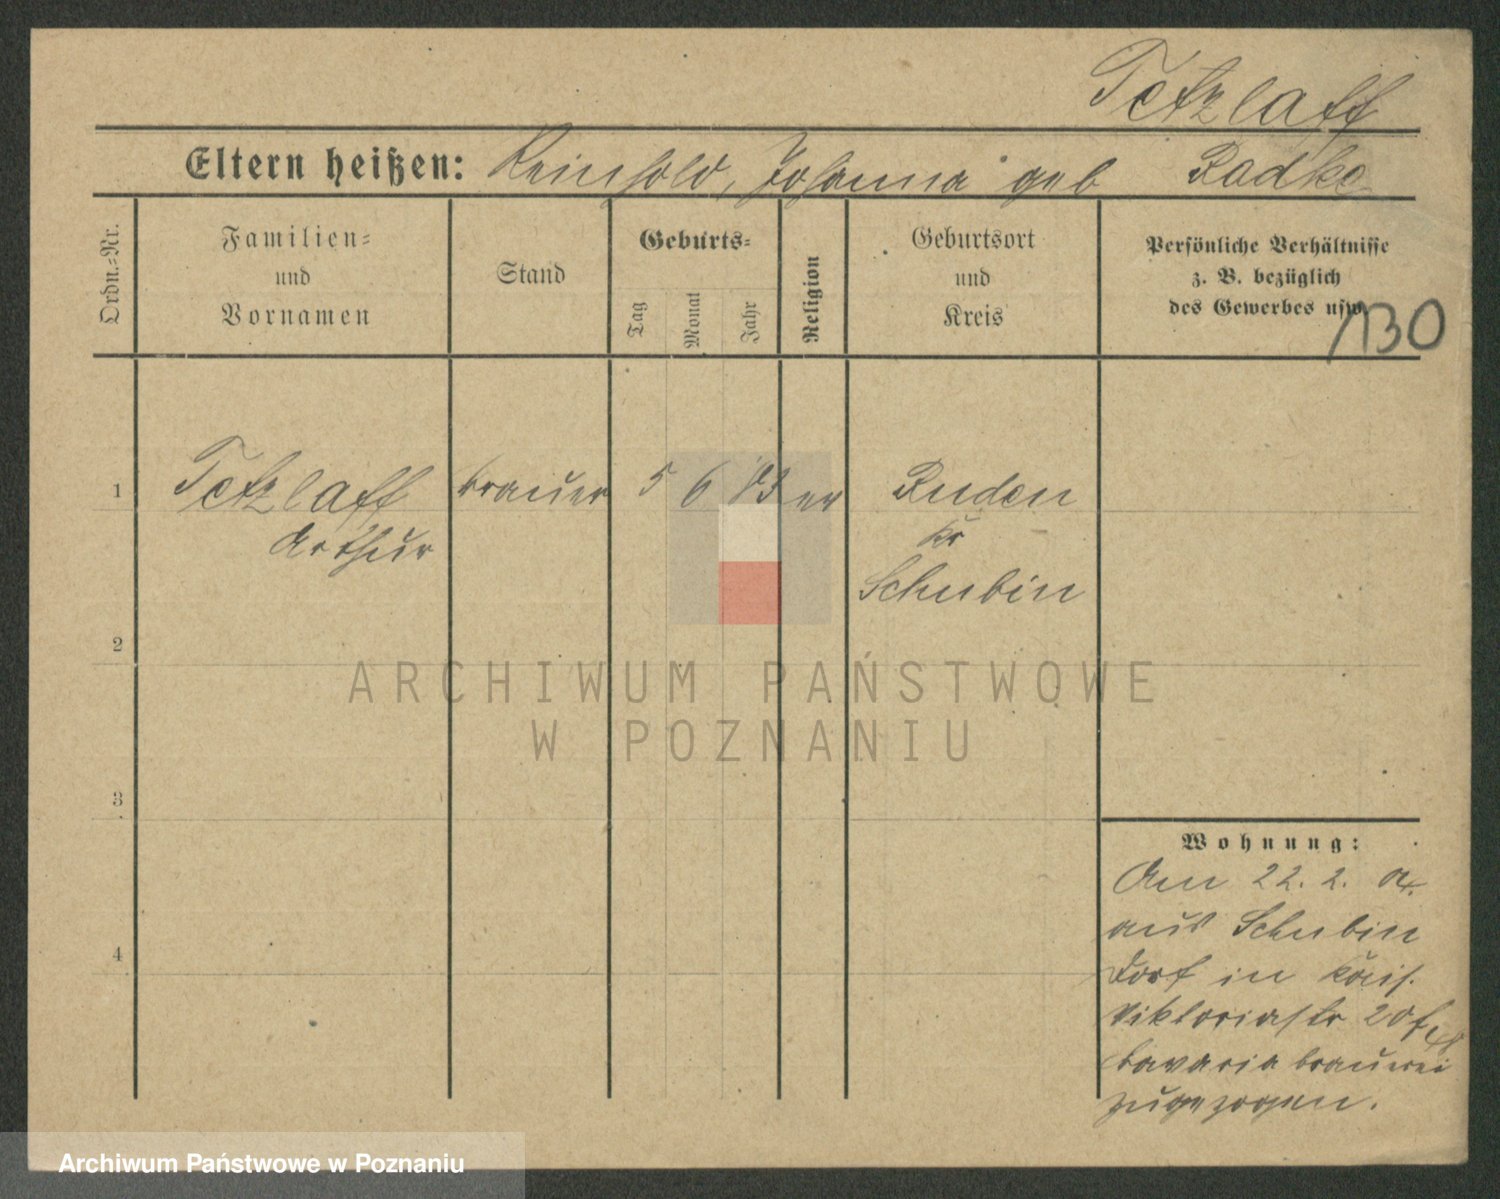 Tetzlaff
Eltern heißen: Reinhold, Johanna geb Radke
Ordn.=Nr.
Familien=
und
Vornamen
Stand
Geburts=
Tag
Monat
Jahr
Religion
Geburtsort
und
Kreis
Persönliche Verhältnisse
z. B. bezüglich
des Gewerbes usw.
130
1
Tetzlaff
Arthur
brauer
5 6 83
ev
Ruden
Kr
Schubin
2
ARCHIWUM PAŃSTWOWE
W POZNANIU
3
Wohnung:
Am 22. 2.
aus Schubin
Dorf in
Viktoriastr 20
bavaria brauerei
zugezogen.
4
Archiwum Państwowe w Poznaniu